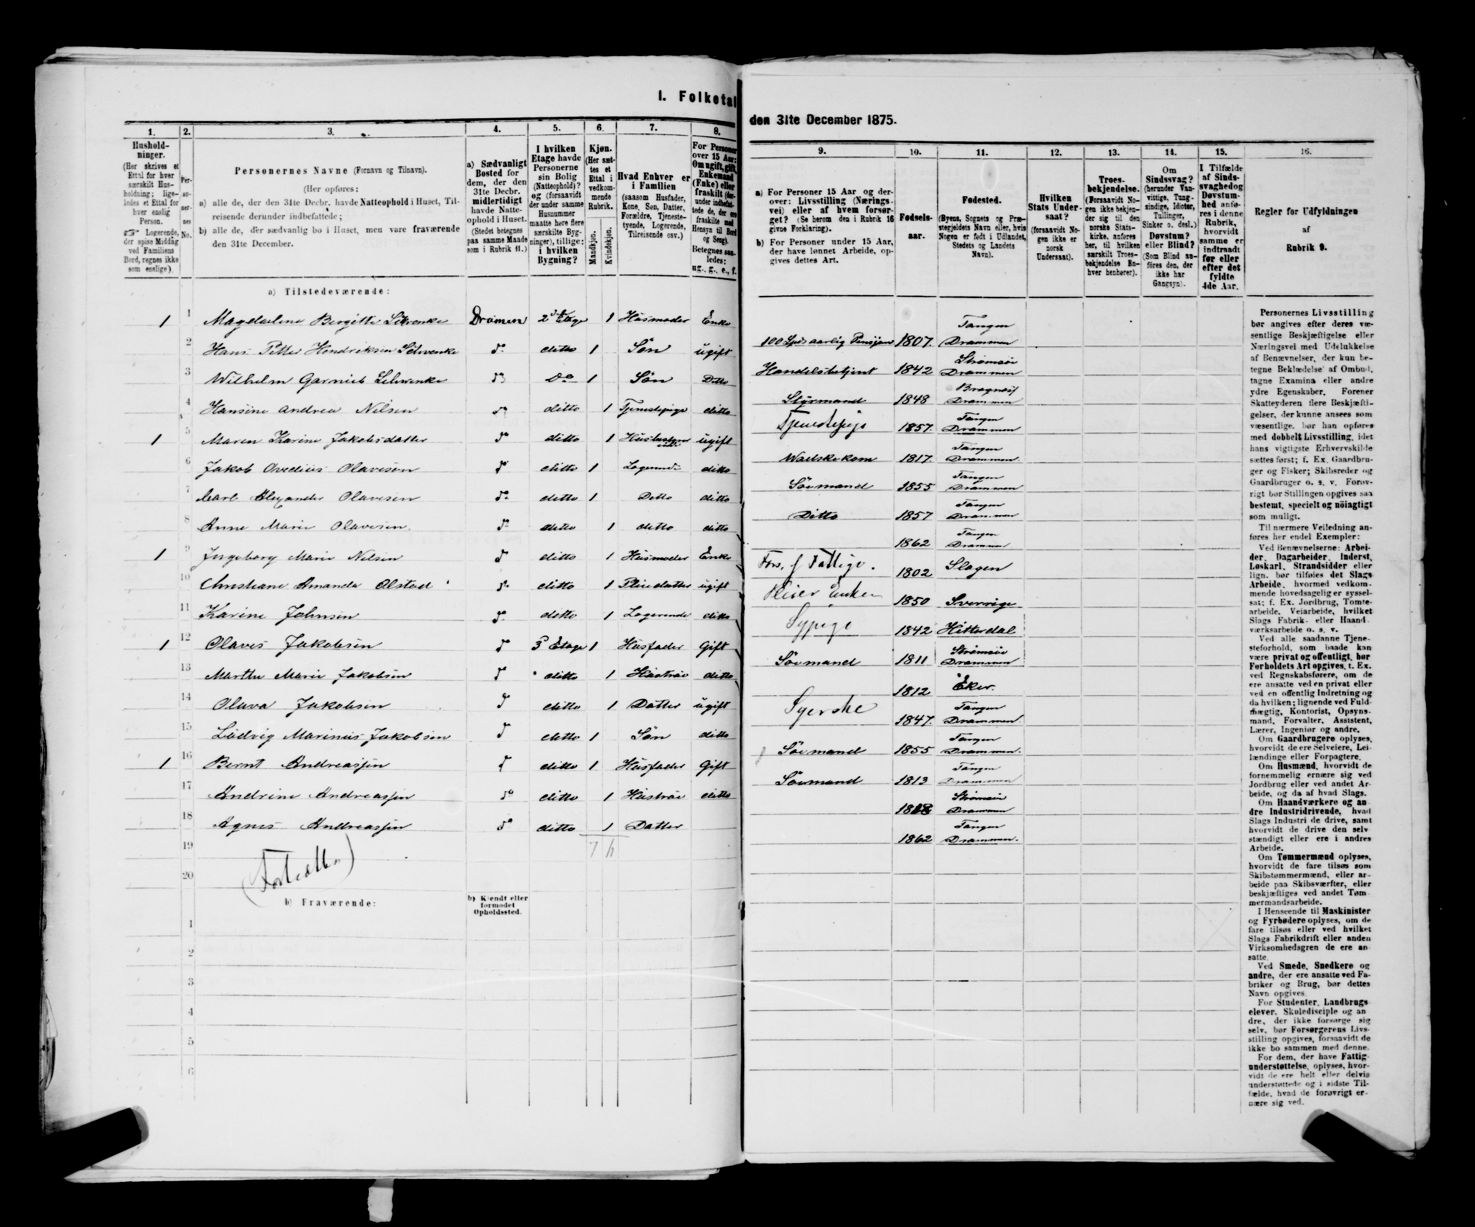 I. Folketal
den 31te December 1875.
1.
2.
3.
4.
5.
6.
7.
8.
Hushold-
ninger.
(Her skrives et
Ettal for hver
særskilt Hus-
holdning; lige-
ledes et Ettal for
hver enslig
Person.
Logerende,
der spise Middag
ved Familiens
Bord, regnes ikke
som enslige.)
Per-
so-
ner-
nes
No.
Personernes Navne (Fornavn og Tilnavn).
(Her opføres:
a) alle de, der den 31te Decbr. havde Natteophold i Huset, Til-
reisende derunder indbefattede;
b) alle de, der sædvanlig bo i Huset, men vare fraværende
den 31te December.
a) Sædvanligt
Bosted for
dem, der den
31te Decbr.
midlertidigt
havde Natte-
ophold i Huset.
(Stedet betegnes
paa samme Maade
som i Rubrik 11.)
I hvilken
Etage havde
Personerne
sin Bolig
(Natteophold)?
og (forsaavidt
der under samme
Husnummer
maatte høre flere
særskilte Byg-
ninger), tillige:
i hvilken
Bygning?
Kjøn.
(Her sæt-
tes et
Ettal i
vedkom-
mende
Rubrik.
Mandkjøn.
Kvindekjøn.
Hvad Enhver er
i Familien
(saasom Husfader,
Kone, Søn, Datter,
Forældre, Tjeneste-
tyende, Logerende,
Tilreisende osv.)
For Personer
over 15 Aar:
Om ugift, gift,
Enkemand
(Enke) eller
fraskilt
ug., g., e., f.
a) Tilstedeværende:
1 1 Magdalene Bergitte Schwenke Dramen 2den Etage 1 Husmoder Enke
2 Hans Petter Hendriksen Schwenke do ditto 1 Søn ugift
3 Wilhelm Garnieb Schwenke do Do 1 Søn Ditto
4 Hansine Andrea Nilsen do ditto 1 Tjenestepige ditto
1 5 Maren Karine Jakobsdatter do ditto 1 ugift
6 Jakob Olavesen do ditto 1 Logerende ditto
7 Carl Alexander Olavesen do ditto 1 Ditto ditto
8 Anne Marie Olavesen do ditto 1 ditto ditto
1 9 Ingeborg Marie Nilsen do ditto 1 Husmoder Enke
10 Christiane Amanda Olstad do ditto 1 Pleiedatter ugift
11 Karine Johnsen do ditto 1 Logerende ditto
1 12 Olaves Jakobsen do 3 Etage 1 Husfader Gift
13 Marthe Marie Jakobsen do ditto 1 Hustrue ditto
14 Olava Jakobsen do ditto 1 Datter ugift
15 Ludvig Marinius Jakobsen do ditto 1 Søn ditto
1 16 Bernt Andreassen do ditto 1 Husfader Gift
17 Andrine Andreassen do ditto 1 Hustrue ditto
18 Agnes Andreassen do ditto 1 Datter
19
20
b) Fraværende:
b) Kjendt eller
formodet
Opholdssted.
1
2
3
4
5
6
9.
10.
11.
12.
13.
14.
15.
16.
a) For Personer 15 Aar og der-
over: Livsstilling (Nærings-
vei) eller af hvem forsør-
get? (Se herom den i Rubrik 16
givne Forklaring).
b) For Personer under 15 Aar,
der have lønnet Arbeide, op-
gives dettes Art.
Fødsels-
aar.
Fødested.
(Byens, Sognets og Præ-
stegjeldets Navn eller, hvis
Nogen er født i Udlandet,
Stedets og Landets
Navn).
Hvilken
Stats Under-
saat?
(forsaavidt No-
gen ikke er
norsk
Undersaat).
Troes-
bekjendelse.
(Forsaavidt No-
gen ikke bekjen-
der sig til den
norske Stats-
kirke, anføres
her, til hvilken
særskilt Troes-
bekjendelse En-
hver henhører).
Om
Sindssvag?
(herunder Van-
vittige, Tung-
sindige, Idioter,
Tullinger,
Sinker o. desl.)
Døvstum?
eller Blind?
(Som Blind an-
føres den, der
ikke har
Gangsyn).
I Tilfælde
af Sinds-
svaghed og
Døvstum-
hed anfø-
res i denne
Rubrik,
hvorvidt
samme er
indtraadt
før eller
efter det
fyldte
4de Aar.
Regler for Udfyldningen
af
Rubrik 9.
100 Spd aarlig Pension 1807 Tangen Drammen
Handelsbetjent 1842 Strømsø Drammen
Styrmand 1848 Bragnæs Drammen
Tjenestepige 1857 Tangen Drammen
Vadskekone 1817 Tangen Drammen
Sømand 1855 Tangen Drammen
Ditto 1857 Tangen Drammen
1862 Tangen Drammen
Fors. af Fattigv. 1802 Slagen
1850 Sverrige
Sypige 1842 Hitterdal
Sømand 1811 Strømsø Drammen
1812 Eker
Syerske 1847 Tangen Drammen
Sømand 1855 Tangen Drammen
Sømand 1813 Tangen Drammen
Strømsø Drammen
1862 Tangen Drammen
Personernes Livsstilling
bør angives efter deres væ-
sentlige Beskjæftigelse eller
Næringsvei med Udelukkelse
af Benævnelser, der kun be-
tegne Beklædelse af Ombud,
tagne Examina eller andre
ydre Egenskaber. Forener
Skatteyderen flere Beskjæfti-
gelser, der kunne ansees som
væsentlige, bør han opføres
med dobbelt Livsstilling, idet
hans vigtigste Erhvervskilde
sættes først; f. Ex. Gaardbru-
ger og Fisker; Skibsreder og
Gaardbruger o. s. v. Forøv-
rigt bør Stillingen opgives saa
bestemt, specielt og nøiagtigt
som muligt.
Til nærmere Veiledning an-
føres her endel Exempler:
Ved Benævnelserne: Arbei-
der, Dagarbeider, Inderst,
Løskarl, Strandsidder eller
lign. bør tilføies det Slags
Arbeide, hvormed vedkom-
mende hovedsagelig er syssel-
sat; f. Ex. Jordbrug, Tomte-
arbeide, Veiarbeide, hvilket
Slags Fabrik- eller Haand-
værksarbeide o. s. v.
Ved alle saadanne Tjene-
steforhold, som baade kan
være privat og offentligt, bør
Forholdets Art opgives, f. Ex.
ved Regnskabsførere, om de
ere ansatte ved en privat eller
ved en offentlig Indretning og
da hvilken; lignende ved Fuld-
mægtig, Kontorist, Opsyns-
mand, Forvalter, Assistent,
Lærer, Ingeniør og andre.
Om Gaardbrugere oplyses,
hvorvidt de ere Selveiere, Lei-
lændinge eller Forpagtere.
Om Husmænd, hvorvidt de
fornemmelig ernære sig ved
Jordbrug eller ved andet Ar-
beide, og da af hvad Slags.
Om Haandværkere og an-
dre Industridrivende, hvad
Slags Industri de drive, samt
hvorvidt de drive den selv-
stændigt eller ere i andres
Arbeide.
Om Tømmermænd oplyses,
hvorvidt de fare tilsøs som
Skibstømmermænd, eller ar-
beide paa Skibsværfter, eller
beskjæftiges ved andet Tøm-
mermandsarbeide.
I Henseende til Maskinister
og Fyrbødere oplyses, om de
fare tilsøs eller ved hvilket
Slags Fabrikdrift eller anden
Virksomhedsgren de ere an-
satte.
Ved Smede, Snedkere og
andre, der ere ansatte ved Fa-
briker og Brug, bør dettes
Navn opgives.
For Studenter, Landbrugs-
elever, Skoledisciple og an-
dre, der ikke forsørge sig
selv, bør Forsørgerens Livs-
stilling opgives, forsaavidt de
ikke bo sammen med denne.
For dem, der have Fattig-
understøttelse, oplyses, hvor-
vidt de ere helt eller delvis
understøttede og i sidste Til-
fælde, hvad de forøvrigt er-
nære sig ved.